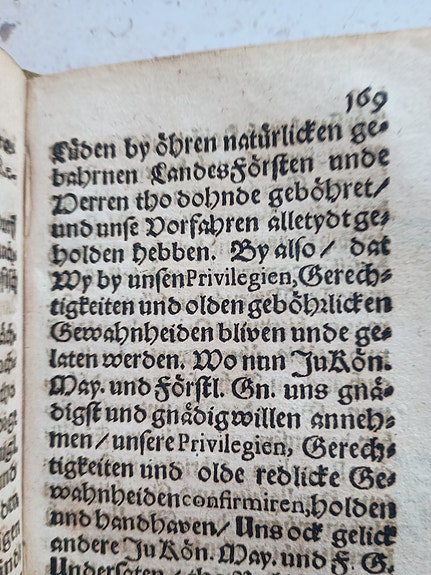 169
Lüden by öhren natürlicken ge⸗
bahrnen LandesFörsten unde
Herren tho dohnde geböhret/
und unse Vorfahren alletydt ge⸗
holden hebben. By also / dat
Wy by unsen Privilegien, Gerech⸗
tigkeiten und olden geböhrlicken
Gewahnheiden bliven unde ge⸗
laten werden. Wo nun Ju Kön.
May. und Förstl. Gn. uns gnä⸗
digst und gnädig willen anneh⸗
men / unsere Privilegien, Gerech⸗
tigkeiten und olde redlicke Ge⸗
wahnheiden confirmiren, holden
und handhaven / Uns ock gelick
andere Ju Kön. May. und F. G.
Undersaten